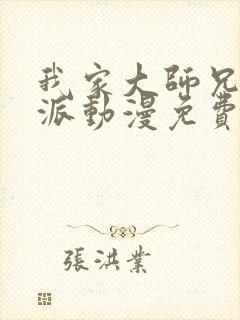 我家大師兄
派動漫免費
張洪業